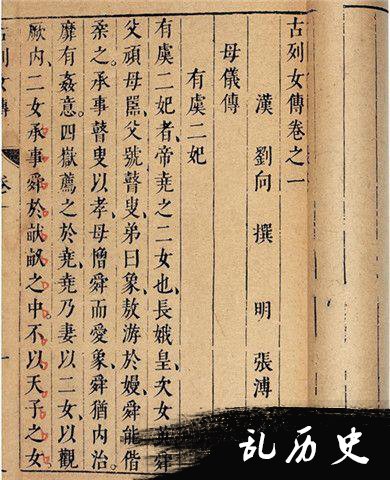 古列女傳卷之一
漢 劉向 撰 明 張溥
母儀傳
有虞二妃
有虞二妃者、帝堯之二女也、長娥皇、次女英舜
父頑母嚚、父號瞽叟、弟曰象、敖游於嫚、舜能偕
柔之、承事瞽叟以孝、母憎舜而愛象、舜猶內治、
靡有姦意、四嶽薦之於堯、堯乃妻以二女、以觀
厥內、二女承事舜於畎畝之中、不以天子之女
古列女傳 卷一
乱历史